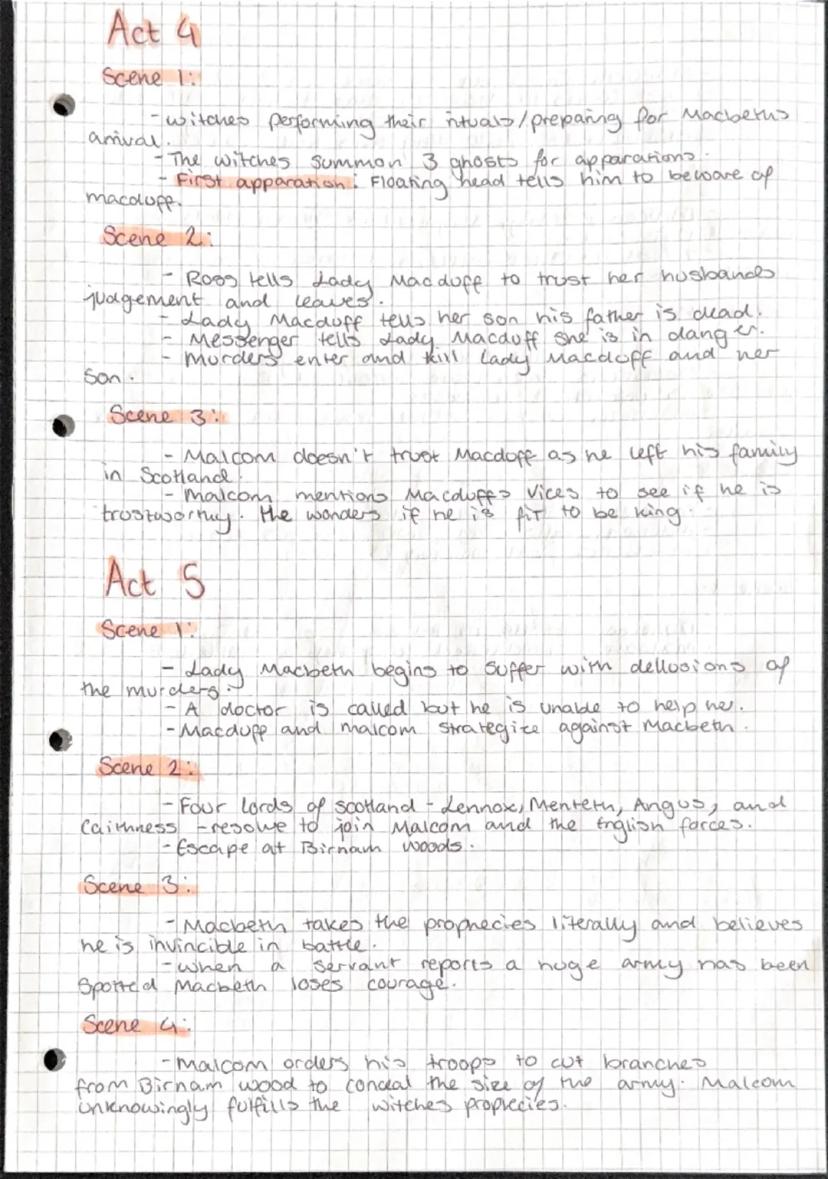 Act 4
Scene 1:
- witches performing their rituals/preparing for Macbeths
arrival.
- The witches summon 3 ghosts for apparations.
- First apparation: Floating head tells him to beware of
macduff.
Scene 2:
- Ross tells Lady Macduff to trust her husbands
judgement and leaves.
- Lady Macduff tells her son his father is dead.
- Messenger tells Lady Macduff she is in danger.
- Murders enter and kill Lady Macduff and her
son.
Scene 3:
- Malcom doesn't trust Macduff as he left his family
in Scotland.
- Malcom mentions Macduffs vices to see if he is
trustworthy. He wonders if he is fit to be king.
Act 5
Scene 1:
- Lady Macbeth begins to suffer with dellusions of
the murders.
- A doctor is called but he is unable to help her.
- Macduff and malcom strategize against Macbeth.
Scene 2:
- Four lords of scotland - Lennox, Menteth, Angus, and
Caithness - resolve to join Malcom and the English forces.
- Escape at Birnam woods.
Scene 3:
- Macbeth takes the prophecies literally and believes
he is invincible in battle.
- when a servant reports a huge army has been
spotted Macbeth loses courage.
Scene 4:
- Malcom orders his troops to cut branches
from Birnam wood to conceal the size of the army. Malcom
unknowingly fulfills the witches prophecies.